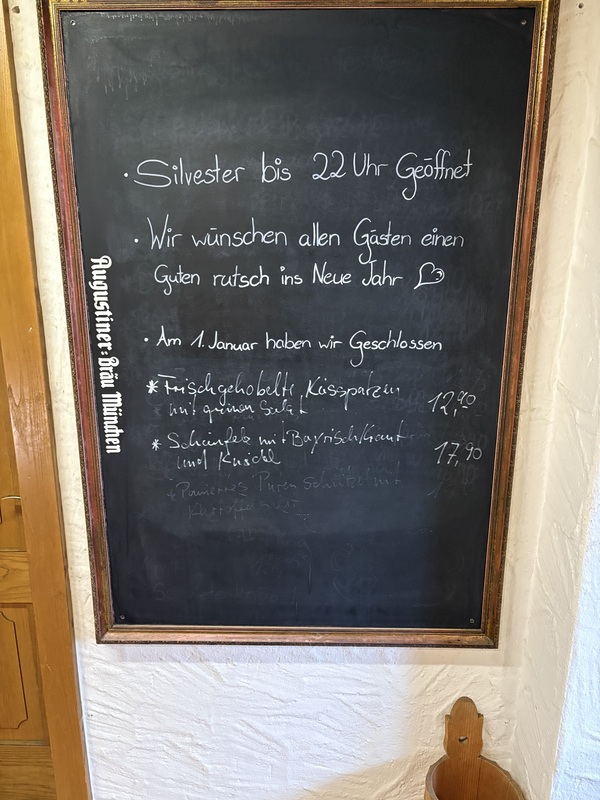 • Silvester bis 22 Uhr Geöffnet
• Wir wünschen allen Gästen einen
Guten rutsch ins Neue Jahr
• Am 1. Januar haben wir Geschlossen
* Frischgehobelte Kässpatzen
mit grünen Salat 12,90
* Schäufele mit Bayrisch Kraut
und Knödel 17,90
* Paniertes Puten Schnitzel mit
Augustiner-Bräu München